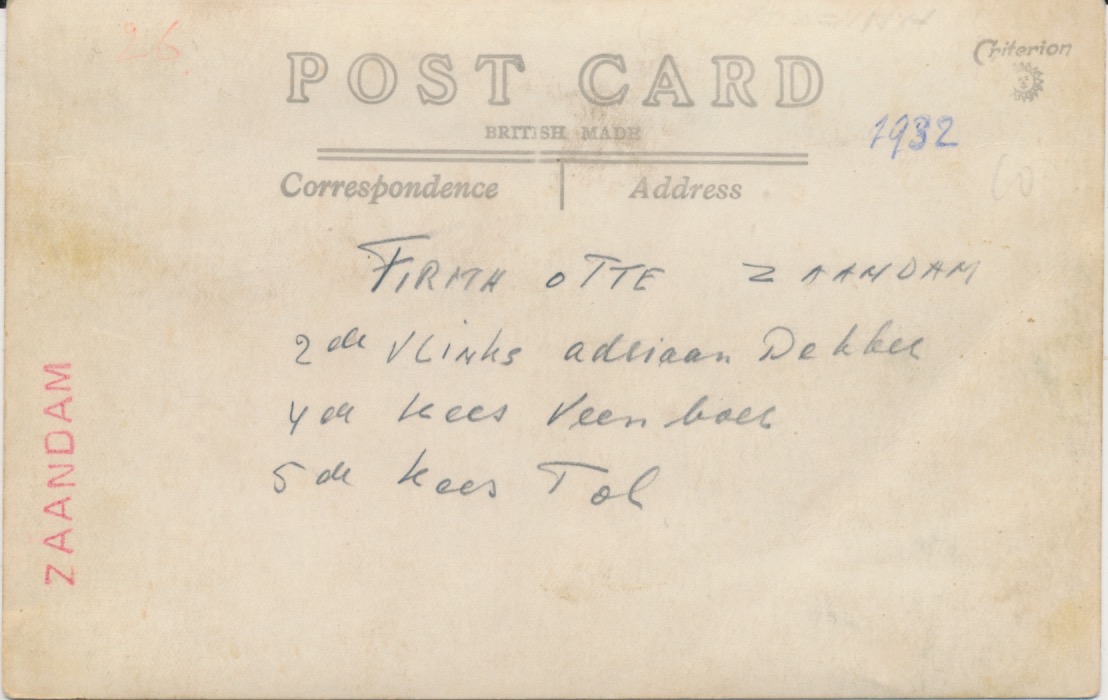 26
POST CARD
Criterion
BRITISH MADE
1932
Correspondence Address
FIRMA OTTE ZAANDAM
2de VLinks adriaan Dekker
4de Kees Veenboer
5de Kees Tol
ZAANDAM